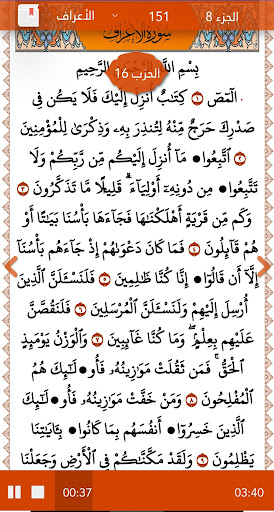 الجزء 8 151 الأعراف
سورة الأعراف
بِسْمِ اللَّهِ الرَّحْمَٰنِ الرَّحِيمِ
الحزب 16
الٓمٓصٓ ١ كِتَٰبٌ أُنزِلَ إِلَيْكَ فَلَا يَكُن فِى
صَدْرِكَ حَرَجٌ مِّنْهُ لِتُنذِرَ بِهِۦ وَذِكْرَىٰ لِلْمُؤْمِنِينَ
٢ ٱتَّبِعُوا۟ مَآ أُنزِلَ إِلَيْكُم مِّن رَّبِّكُمْ وَلَا
تَتَّبِعُوا۟ مِن دُونِهِۦٓ أَوْلِيَآءَ ۗ قَلِيلًا مَّا تَذَكَّرُونَ ٣
وَكَم مِّن قَرْيَةٍ أَهْلَكْنَٰهَا فَجَآءَهَا بَأْسُنَا بَيَٰتًا أَوْ
هُمْ قَآئِلُونَ ٤ فَمَا كَانَ دَعْوَىٰهُمْ إِذْ جَآءَهُم بَأْسُنَآ
إِلَّآ أَن قَالُوٓا۟ إِنَّا كُنَّا ظَٰلِمِينَ ٥ فَلَنَسْـَٔلَنَّ ٱلَّذِينَ
أُرْسِلَ إِلَيْهِمْ وَلَنَسْـَٔلَنَّ ٱلْمُرْسَلِينَ ٦ فَلَنَقُصَّنَّ
عَلَيْهِم بِعِلْمٍ ۖ وَمَا كُنَّا غَآئِبِينَ ٧ وَٱلْوَزْنُ يَوْمَئِذٍ
ٱلْحَقُّ ۚ فَمَن ثَقُلَتْ مَوَٰزِينُهُۥ فَأُو۟لَٰٓئِكَ هُمُ
ٱلْمُفْلِحُونَ ٨ وَمَنْ خَفَّتْ مَوَٰزِينُهُۥ فَأُو۟لَٰٓئِكَ
ٱلَّذِينَ خَسِرُوٓا۟ أَنفُسَهُم بِمَا كَانُوا۟ بِـَٔايَٰتِنَا
يَظْلِمُونَ ٩ وَلَقَدْ مَكَّنَّٰكُمْ فِى ٱلْأَرْضِ وَجَعَلْنَا
00:37 03:40